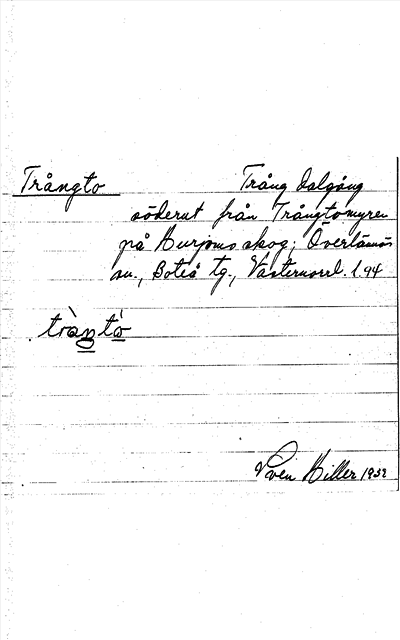 Trångto Trång dalgång
söderut från Trångtomyren
på Kurjoms skog; Överlännäs
sn., Boteå tg., Västernorrl. l. 94
tràŋtò
Sven Hiller 1932